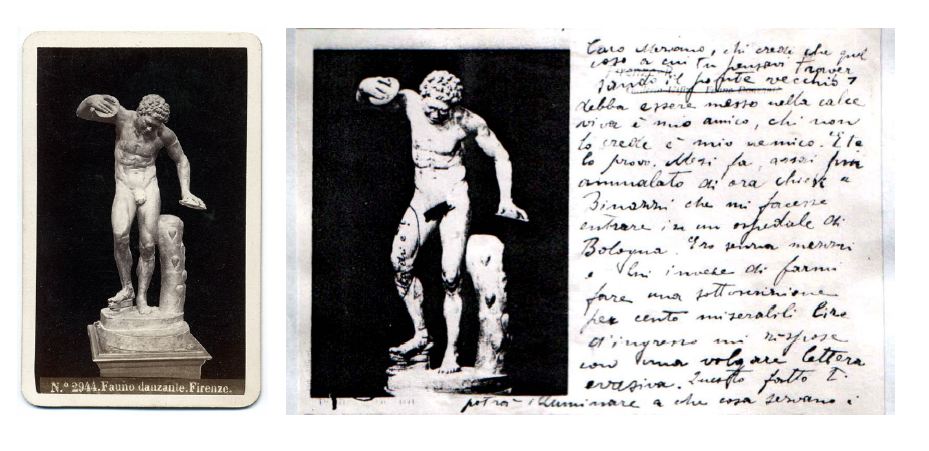 N.º 2944. Fauno danzante. Firenze.
Caro Mersano, chi crede che quel
coso a cui tu pensavi
il ponte vecchio
debba essere messo nella calce
viva è mio amico, chi non
lo crede è mio nemico. E te
lo provo. Mesi fa, assai più
ammalato di ora chiesi a
Binazzi che mi facesse
entrare in un ospedale di
Bologna. Ero senza mezzi
e lui invece di farmi
fare una sottoscrizione
per cento miserabili lire
d'ingresso mi rispose
con una volgare lettera
evasiva. Questo fatto ti
potrà illuminare a che cosa servano i